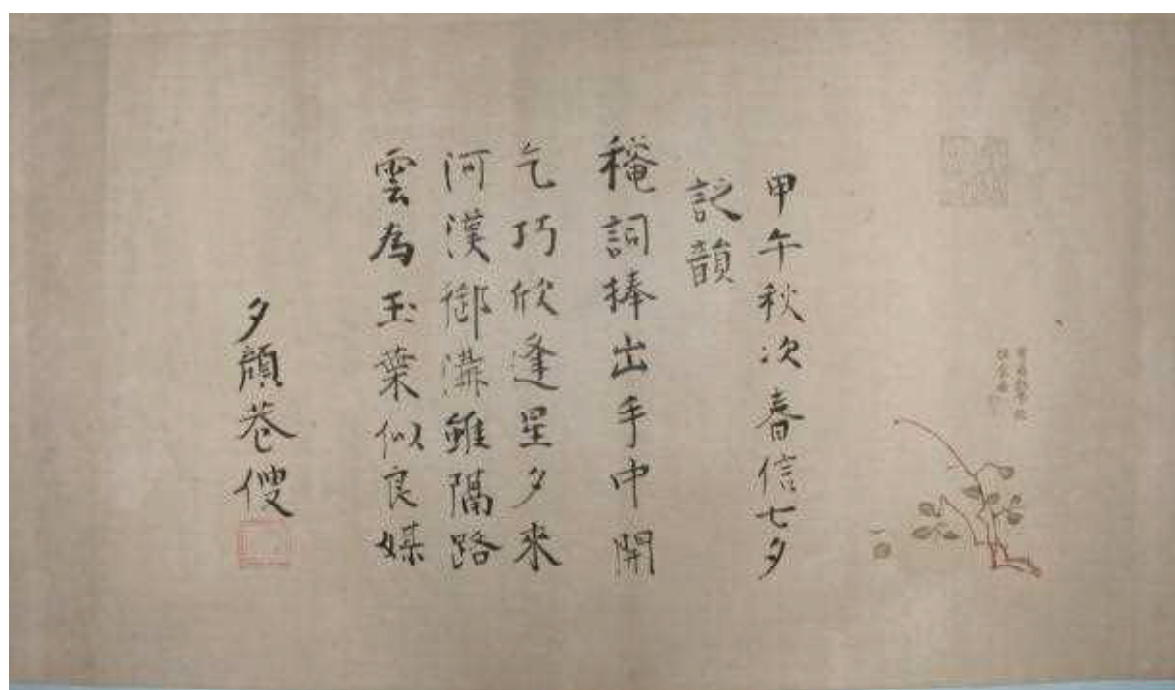 甲午秋次春信七夕
記韻
穐詞捧出手中開
乞巧欣逢星夕來
河漢御溝雖隔路
雲為玉葉似良媒
夕顔巷傁